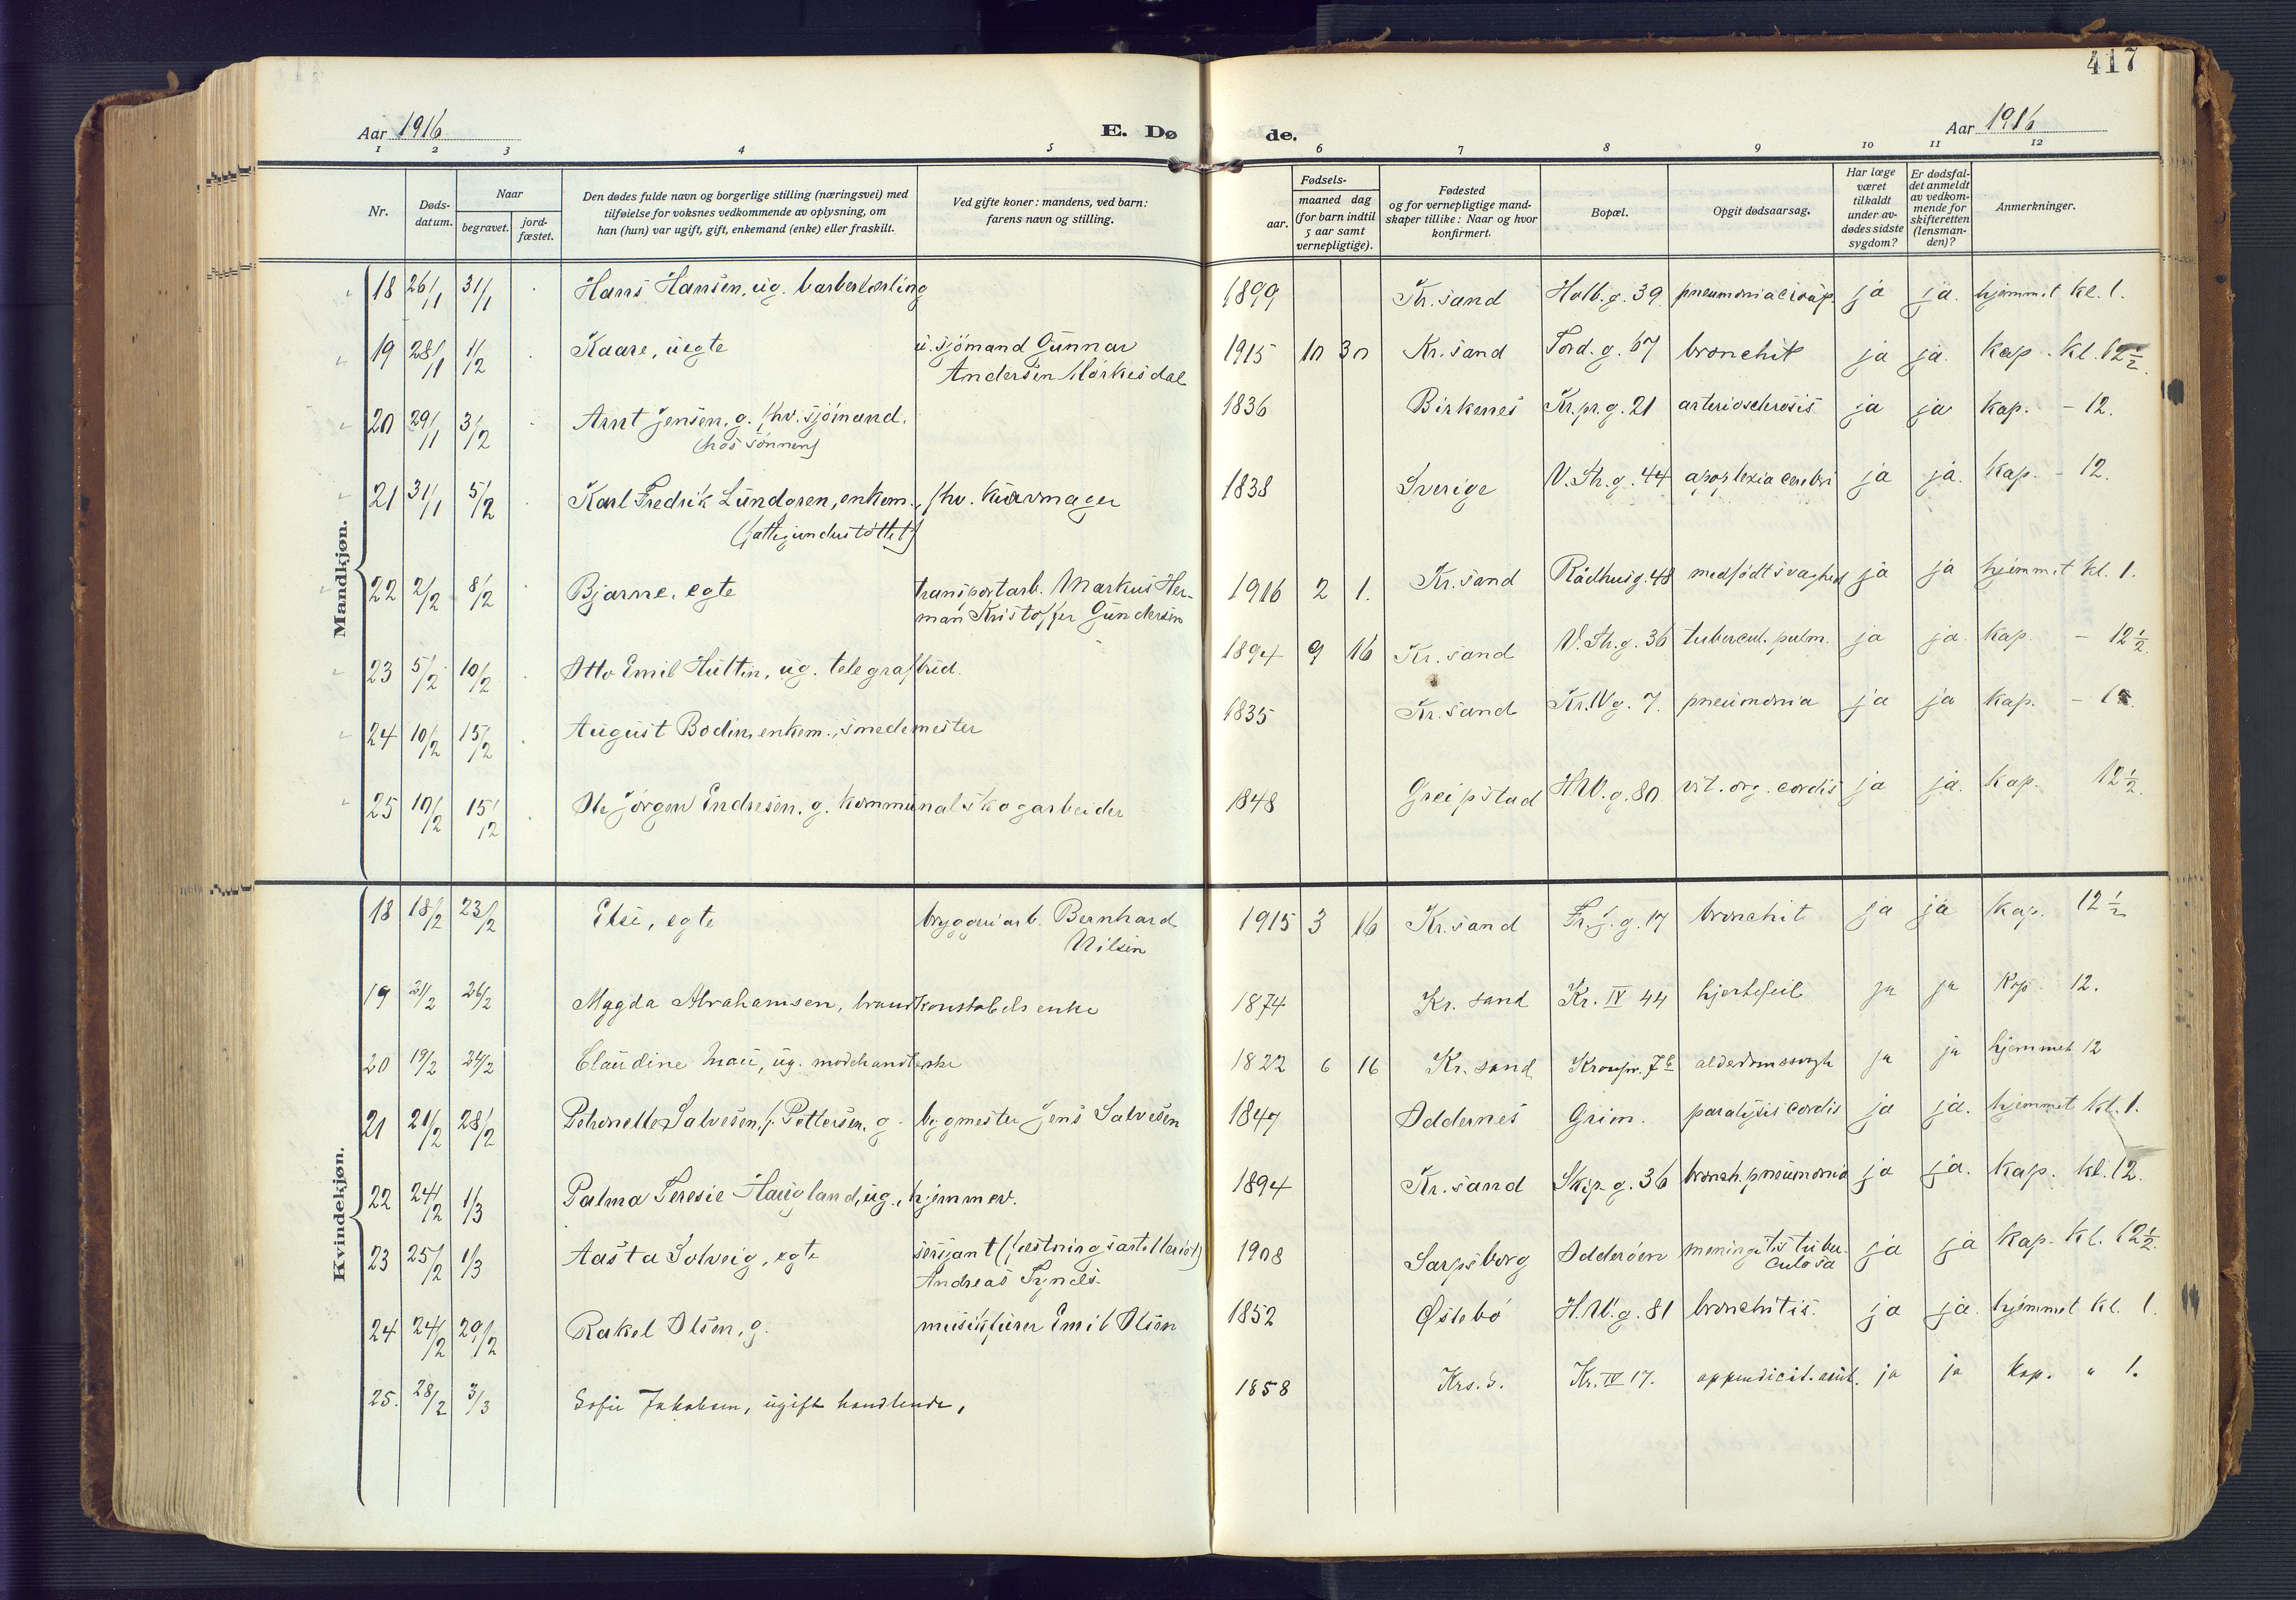 417
Aar 1916 E. Dø de. Aar 1916
1 2 3 4 5 6 7 8 9 10 11 12
Nr. Døds-datum. Naar begravet. jord-fæstet. Den dødes fulde navn og borgerlige stilling (næringsvei) med tilføielse for voksnes vedkommende av oplysning, om han (hun) var ugift, gift, enkemand (enke) eller fraskilt. Ved gifte koner: mandens, ved barn: farens navn og stilling. Fødsels- aar. maaned dag (for barn indtil 5 aar samt vernepligtige). Fødested og for vernepligtige mand-skaper tillike: Naar og hvor konfirmert. Bopæl. Opgit dødsaarsag. Har læge været tilkaldt under av-dødes sidste sygdom? Er dødsfal-det anmeldt av vedkom-mende for skifteretten (lensman-den)? Anmerkninger.
Mandkjøn.
18 26/1 31/1 Hans Hansen, ug. barberlærling 1899 Kr.sand Holb.g. 39 pneumonia croup. ja ja. hjemmet kl. 1.
19 28/1 1/2 Kaare, uegte u. sjömand Gunnar 1915 10 30 Kr.sand Tord.g. 67 bronchit ja ja. Kap. kl. 12½.
Andersen Mörkesdal
20 29/1 3/2 Arnt Jensen, g. fhv. sjömand. 1836 Birkenes Kr.pr.g. 21 arteriosclerosis ja ja Kap. - 12.
(hos sönnen)
21 31/1 5/2 Karl Fredrik Lundgren, enkem., fhv. kurvmager 1838 Sverige V.Str.g. 44 apoplexia cerebri ja ja. Kap. - 12.
(fattigunderstöttet)
22 2/2 8/2 Bjarne, egte transportarb. Markus Her- 1916 2 1. Kr.sand Rådhusg. 48 medfödt svaghed ja ja hjemmet kl. 1.
man Kristoffer Gundersen
23 5/2 10/2 Otto Emil Hultin, ug. telegrafbud. 1894 9 16 Kr.sand V.Str.g. 36 tubercul. pulm. ja ja. Kap. - 12½.
24 10/2 15/2 August Bodin, enkem., smedemester 1835 Kr.sand Kr.IV g. 7. pneumonia ja ja Kap. -
25 10/2 15/2 Ole Jörgen Endresen, g. kommunal skogarbeider 1848 Greipstad H.W.g. 80 vit. org. cordis ja ja. Kap. 12½.
Kvindekjøn.
18 18/2 23/2 Else, egte bryggeriarb. Bernhard 1915 3 16 Kr.sand Fr.j.g. 17 bronchit ja ja Kap. 12½
Nilsen
19 21/2 26/2 Magda Abrahamsen, brandkonstabels enke 1874 Kr. sand Kr. IV 44 hjertefeil ja ja Kap. 12.
20 19/2 24/2 Claudine Mau, ug. modehandlerske 1822 6 16 Kr. sand Kronpr. 7 b alderdomssvagh ja ja hjemmet 12
21 21/2 28/2 Petronelle Salvesen, f. Pettersen, g. bygmester Jens Salvesen 1847 Oddernes Grim. paralysis cordis ja ja. hjemmet kl. 1.
22 24/2 1/3 Palma Teresie Haugland, ug., hjemmev. 1894 Kr.sand Skip.g. 36 bronch. pneumonia ja ja. Kap. kl. 12.
23 25/2 1/3 Aasta Solveig, egte sersjant (festningsartilleriet) 1908 Sarpsborg Odderöen meningitis tuber- ja ja Kap. kl. 12½.
Andreas Synes. culosa
24 24/2 29/2 Rakel Olsen, g. musikfurer Emil Olsen 1852 Østebö H.W.g. 81 bronchitis. ja ja. hjemmet kl. 1.
25. 28/2 3/3 Sofie Jakobsen, ugift handlende, 1858 Krs.S. Kr. IV 17. appendicit. acut. ja ja Kap. " 1.